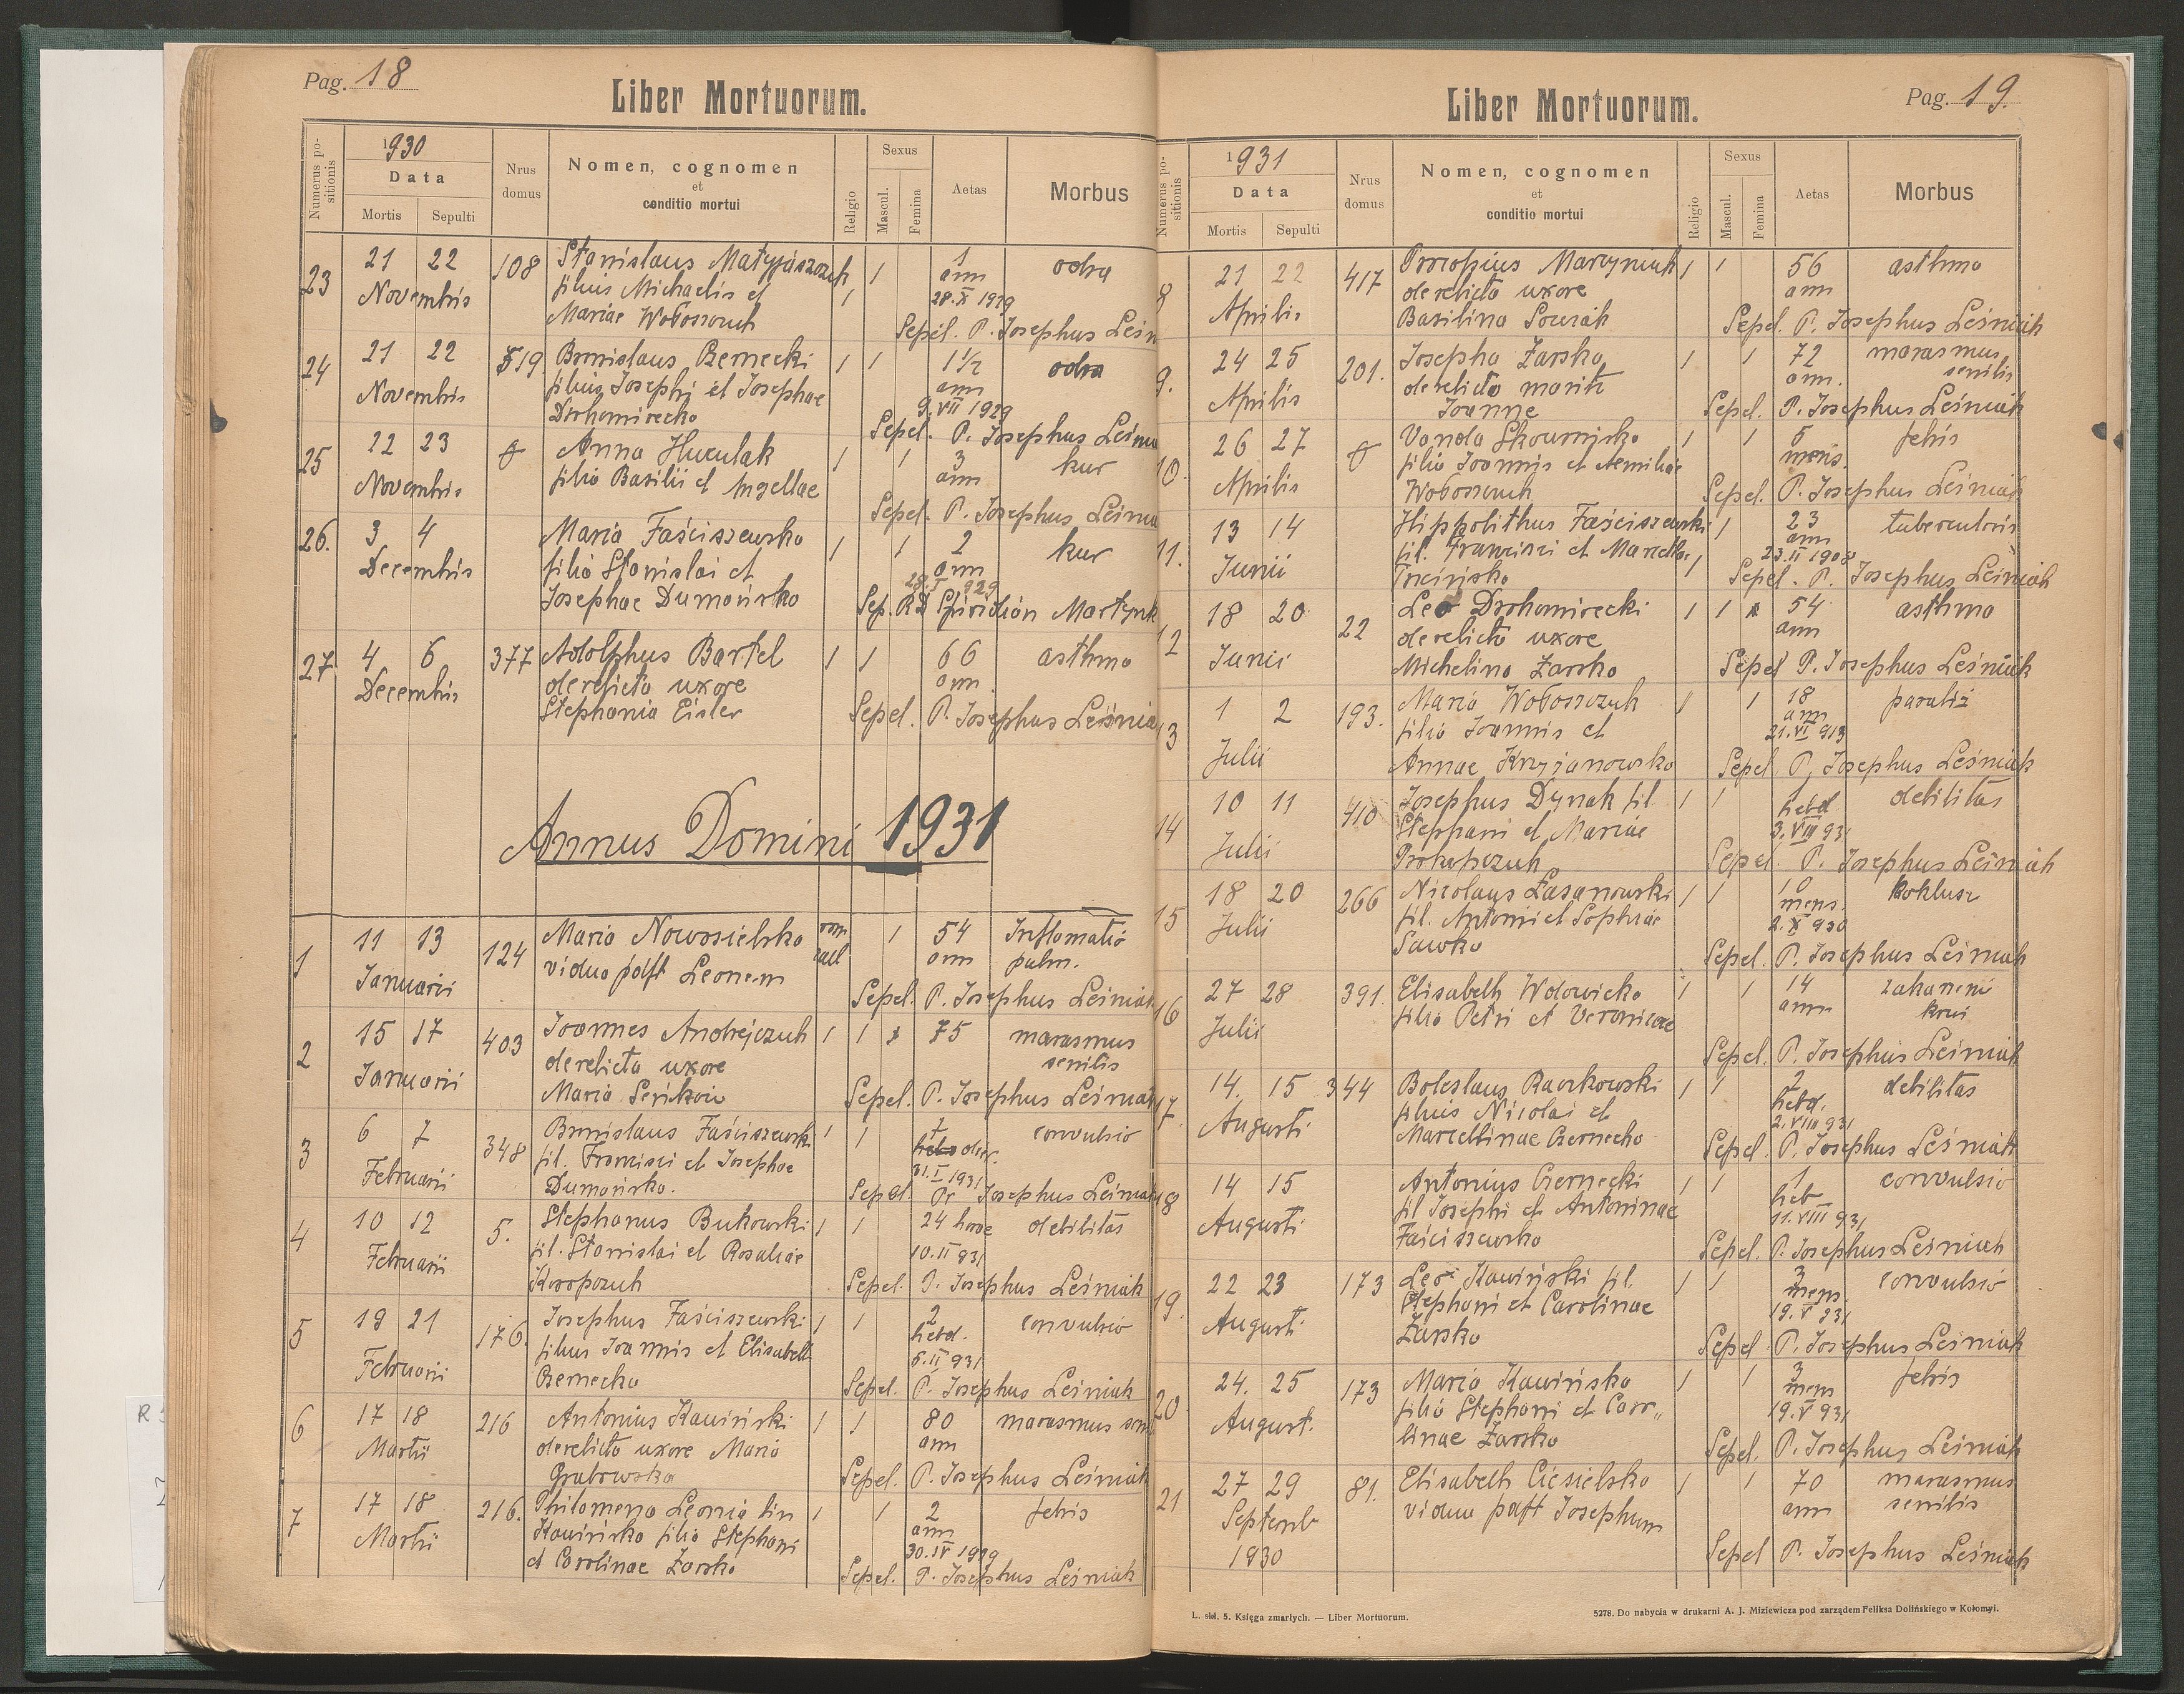 Pag. 18
Liber Mortuorum.
Numerus positionis
1930
Data
Mortis Sepulti
Nrus domus
Nomen, cognomen
et
conditio mortui
Religio
Sexus
Mascul. Femina
Aetas
Morbus
23 21 22 108 Stanislaus Matyjaszczuk 1 1 odra
Novembris filius Michaelis et 1 ann 28.X 1929
Mariae Wołoszczuk Sepel. P. Josephus Leśn
24 21 22 519 Bronislaus Czernecki 1 1 1 1/2 odra
Novembris filius Josephi et Josephae ann
Drohomirecka 9.VII 1929
Sepel. P. Josephus Leśnia
25 22 23 Anna Huculak 1 1 3 kur
Novembris filia Basilii et Angellae ann
Sepel. P. Josephus Leśnia
26. 3 4 Maria Faściszewska 1 1 2 kur
Decembris filia Stanislai et ann
Josephae Dumańska 28.I 929
Sep. RD Spiridion Martynk
27 4 6 377 Adolphus Bartel 1 1 66 asthma
Decembris derelicta uxore ann
Stephania Eisler Sepel. P. Josephus Leśnia
Annus Domini 1931
1 11 13 124 Maria Nowosielska rom 1 54 Inflamatio
Januarii vidua post Leonem cath ann pulm.
Sepel. P. Josephus Leśniak
2 15 17 403 Joannes Andrejczuk 1 1 75 marasmus
Januarii derelicta uxore senilis
Maria Seńków Sepel. P. Josephus Leśniak
3 6 7 348 Bronislaus Faściszewski 1 1 7 convulsio
Februarii fil. Francisci et Josephae hebd dier.
Dumańska. 31.I 1931
Sepel. Pr Josephus Leśniak
4 10 12 5. Stephanus Bukowski 1 1 24 horae debilitas
Februarii fil. Stanislai et Rosaliae 10.II 931
Karopczuk Sepel. P. Josephus Leśniak
5 19 21 176. Josephus Faściszewski 1 1 2 convulsio
Februarii filius Joannis et Elisabeth hebd.
Czernecka 6.II 931
Sepel. P. Josephus Leśniak
6 17 18 216 Antonius Kawiński 1 1 80 marasmus sen
Martii derelicta uxore Maria ann
Grabowska Sepel. P. Josephus Leśniak
7 17 18 216. Philomena Leonia bin 1 1 2 febris
Martii Kawińska filia Stephani ann
et Carolinae Żarska 30.IV 1929
Sepel. P. Josephus Leśniak
Liber Mortuorum.
Pag. 19.
Numerus positionis
1931
Data
Mortis Sepulti
Nrus domus
Nomen, cognomen
et
conditio mortui
Religio
Sexus
Mascul. Femina
Aetas
Morbus
8 21 22 417 Procopius Marcyniuk 1 1 56 asthma
Aprilis derelicta uxore ann
Basilina Sowiak Sepel. P. Josephus Leśniak
9. 24 25 201. Josepha Żarska 1 1 72 marasmus
Aprilis derelicto marito ann. senilis
Joanne Sepel. P. Josephus Leśniak
10. 26 27 Vanda Skowrońska 1 1 5 febris
Aprilis filia Joannis et Aemiliae mens.
Wołoszczuk Sepel. P. Josephus Leśniak
11. 13 14 Hippolithus Faściszewski 1 23 tuberculosis
Junii fil. Francisci et Marcellae 1 ann
Trzcińska 23.II 1908
Sepel. P. Josephus Leśniak
12 18 20 22 Leo Drohomirecki 1 1 54 asthma
Junii derelicta uxore ann
Michelina Żarska Sepel P. Josephus Leśniak
13 1 2 193. Maria Wołoszczuk 1 1 18 paraliż
Julii filia Joannis et ann 21.VI 913
Annae Krzyżanowska Sepel P. Josephus Leśniak
14 10 11 410 Josephus Dynak fil 1 1 1 debilitas
Julii Stephani et Mariae hebd 3.VIII 931
Prokopczuk Sepel. P. Josephus Leśniak
15 18 20 266 Nicolaus Łasanowski 1 1 10 koklusz
Julii fil. Antoni et Sophiae mens. 2.X 930
Sawka Sepel. P. Josephus Leśniak
16 27 28 391. Elisabeth Wolowicka 1 1 14 zakażeni
Julii filia Petri et Veronicae ann krwi
Sepel. P. Josephus Leśniak
17. 14 15 344 Boleslaus Raczkowski 1 1 2 debilitas
Augusti filius Nicolai et hebd. 2.VIII 931
Marcellinae Czernecka Sepel. P. Josephus Leśniak
18 14 15 Antonius Czernecki 1 1 1 convulsio
Augusti fil Josephi et Antoninae heb 11.VIII 931
Faściszewska Sepel. P. Josephus Leśniak
19. 22 23 173 Leo Kawiński fil. 1 1 3 convulsio
Augusti Stephani et Carolinae mens 19.V 931
Żarska Sepel P. Josephus Leśniak
20 24. 25 173 Maria Kawińska 1 1 3 febris
August. filia Stephani et Caro„ mens 19.V 931
linae Żarska Sepel. P. Josephus Leśniak
21 27 29 81. Elisabeth Ciesielska 1 1 70 marasmus
Septemb vidua post Josephum ann senilis
1930 Sepel P. Josephus Leśniak
L. skł. 5. Księga zmarłych. — Liber Mortuorum.
5278. Do nabycia w drukarni A. J. Miziewicza pod zarządem Feliksa Dolińskiego w Kołomyi.